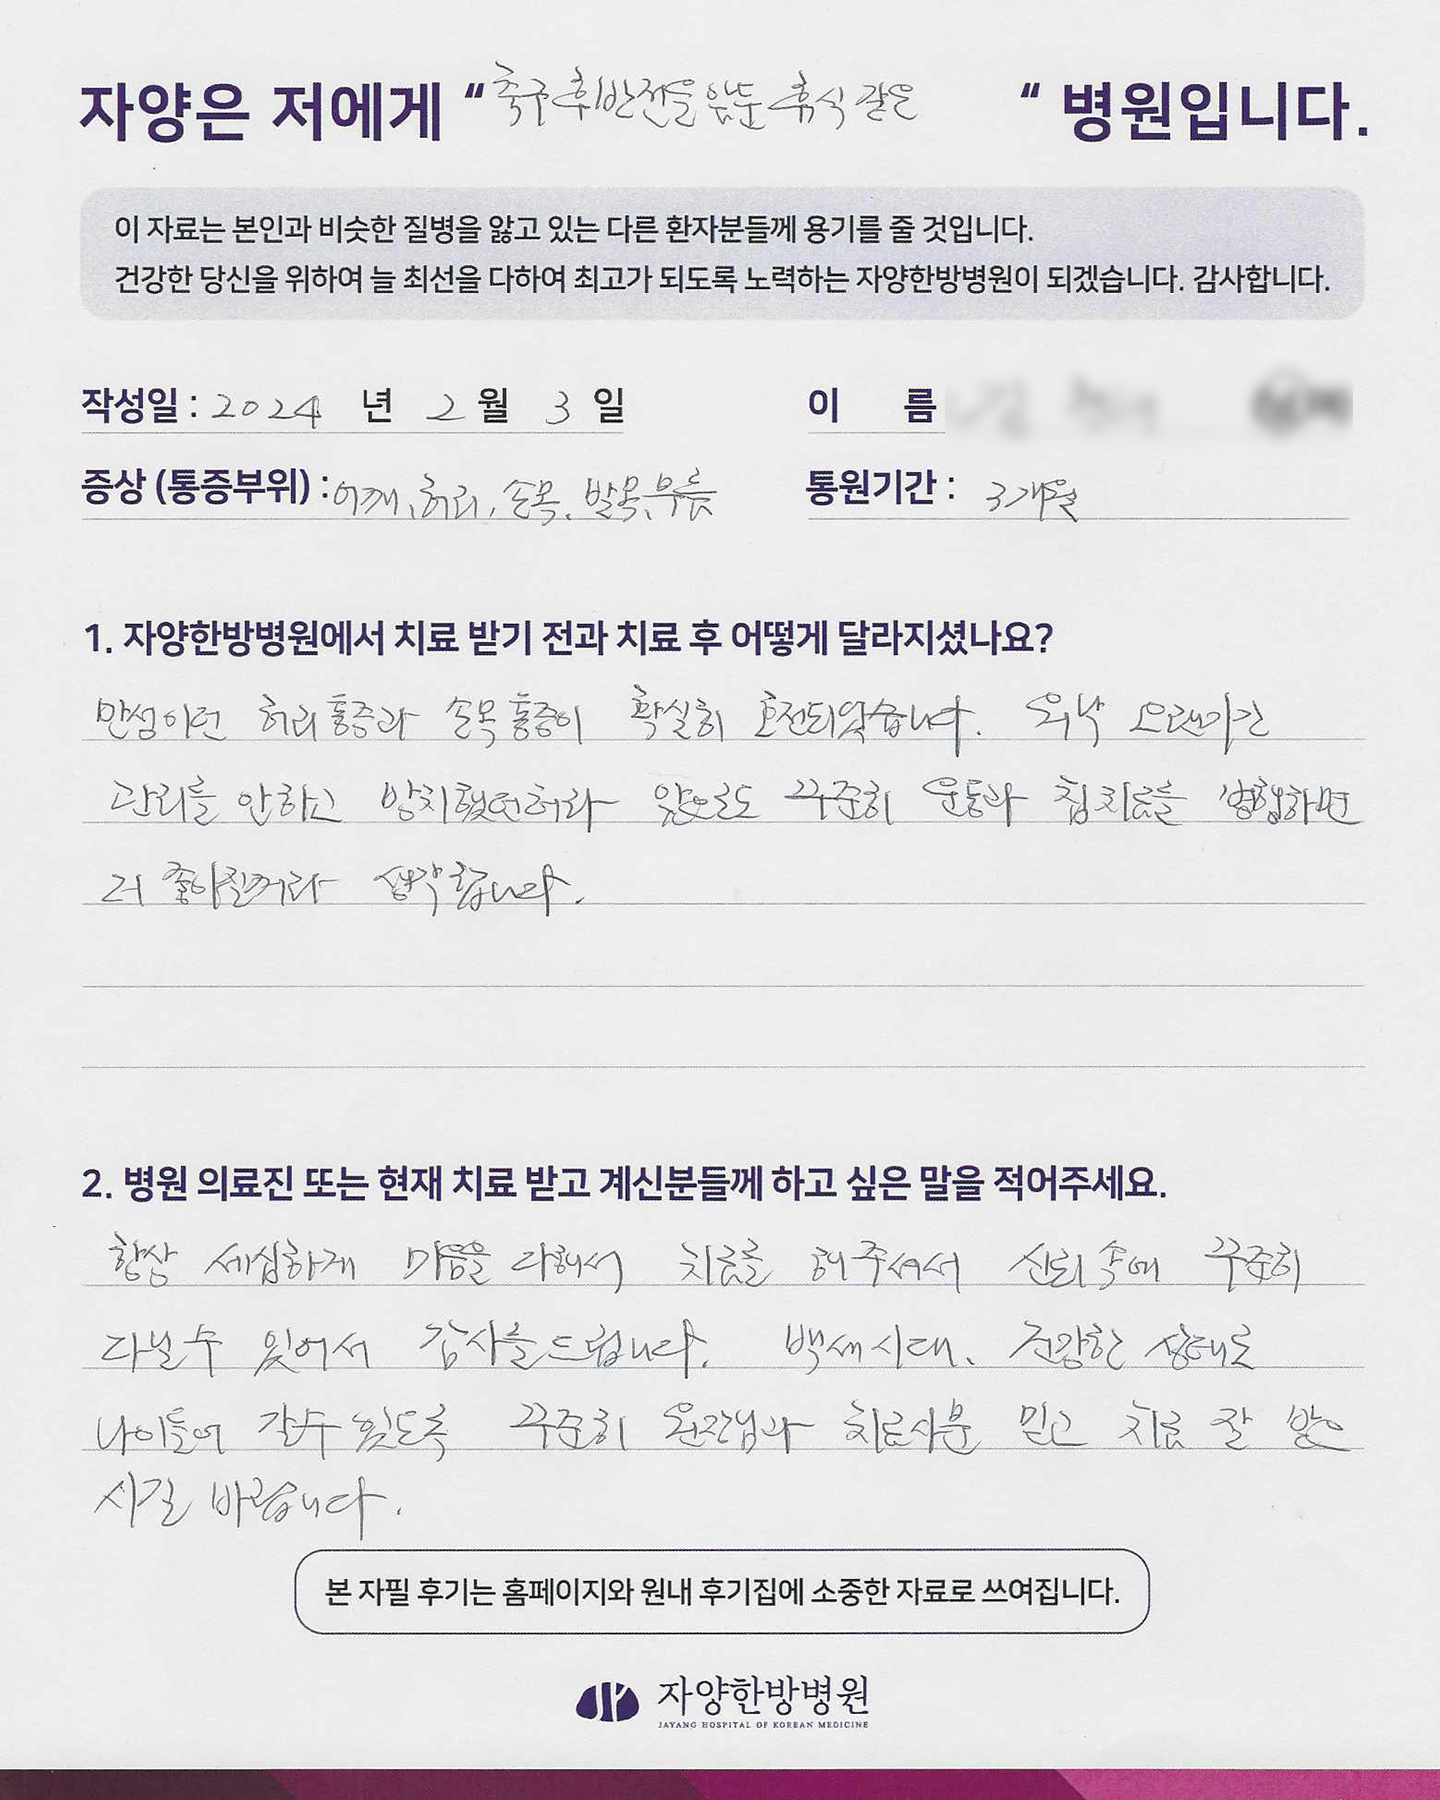 자양은 저에게 “축구 후반전을 앞둔 휴식 같은 “ 병원입니다.
이 자료는 본인과 비슷한 질병을 앓고 있는 다른 환자분들께 용기를 줄 것입니다.
건강한 당신을 위하여 늘 최선을 다하여 최고가 되도록 노력하는 자양한방병원이 되겠습니다. 감사합니다.
작성일 : 2024 년 2 월 3 일 이 름
증상 (통증부위) : 어깨, 허리, 손목, 발목, 무릎 통원기간 : 3개월
1. 자양한방병원에서 치료 받기 전과 치료 후 어떻게 달라지셨나요?
만성이던 허리통증과 손목통증이 확실히 호전되었습니다. 워낙 오랜기간
관리를 안하고 방치했던허라 앞으로도 꾸준히 운동과 침치료를 병합하면
더 좋아질거라 생각합니다.
2. 병원 의료진 또는 현재 치료 받고 계신분들께 하고 싶은 말을 적어주세요.
항상 세심하게 마음을 다해서 치료를 해주셔서 신뢰속에 꾸준히
다닐수 있어서 감사를드립니다. 백세시대. 건강한 상태로
나이들어 갈수 있도록 꾸준히 원장님과 치료사분 믿고 치료 잘 받으
시길 바랍니다.
본 자필 후기는 홈페이지와 원내 후기집에 소중한 자료로 쓰여집니다.
자양한방병원
JAYANG HOSPITAL OF KOREAN MEDICINE